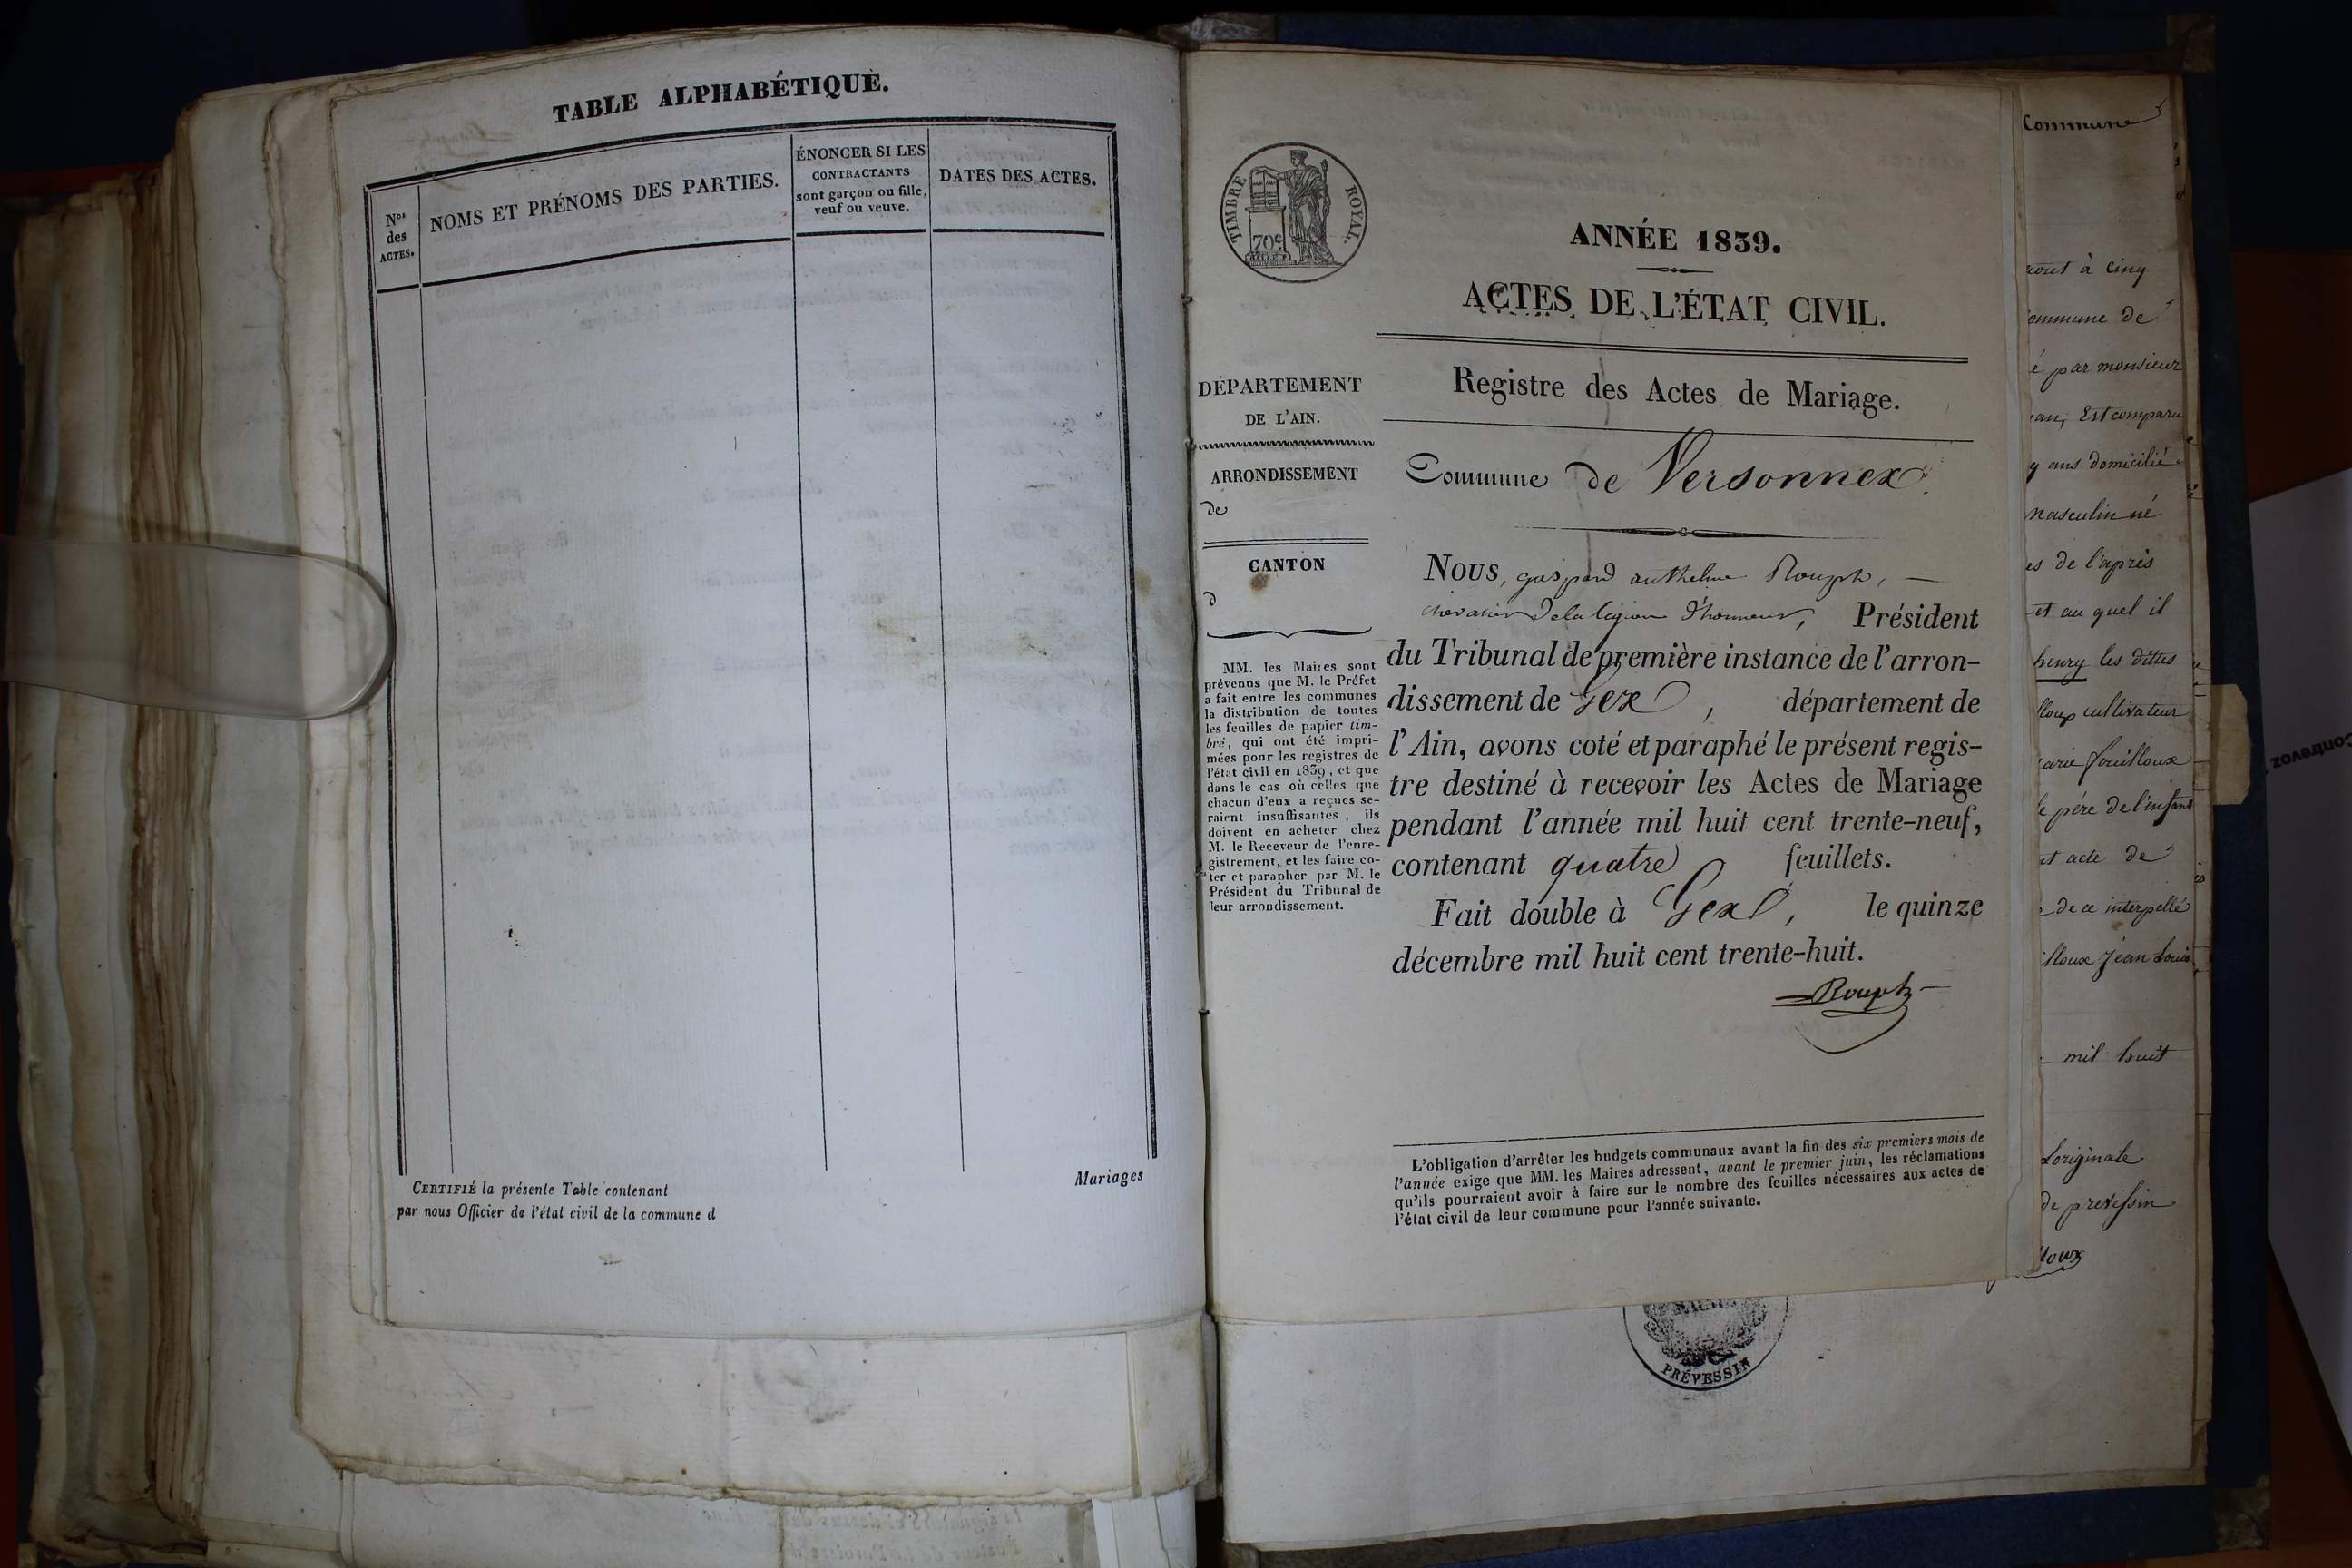 TABLE ALPHABÉTIQUE.
Nos des ACTES.
NOMS ET PRÉNOMS DES PARTIES.
ÉNONCER SI LES
CONTRACTANTS
sont garçon ou fille,
veuf ou veuve.
DATES DES ACTES.
CERTIFIÉ la présente Table contenant
Mariages
par nous Officier de l'état civil de la commune d
TIMBRE ROYAL.
70c
ANNÉE 1839.
ACTES DE L'ÉTAT CIVIL.
DÉPARTEMENT
DE L'AIN.
ARRONDISSEMENT
de
CANTON
d
MM. les Maires sont
prévenus que M. le Préfet
a fait entre les communes
la distribution de toutes
les feuilles de papier tim-
bré, qui ont été impri-
mées pour les registres de
l'état civil en 1839, et que
dans le cas où celles que
chacun d'eux a reçues se-
raient insuffisantes, ils
doivent en acheter chez
M. le Receveur de l'enre-
gistrement, et les faire co-
ter et parapher par M. le
Président du Tribunal de
leur arrondissement.
Registre des Actes de Mariage.
Commune de Versonnex
NOUS, gaspard anthelme Rouph,
chevalier de la légion d'honneur, Président
du Tribunal de première instance de l'arron-
dissement de Gex, département de
l'Ain, avons coté et paraphé le présent regis-
tre destiné à recevoir les Actes de Mariage
pendant l'année mil huit cent trente-neuf,
contenant quatre feuillets.
Fait double à Gex, le quinze
décembre mil huit cent trente-huit.
Rouph
L'obligation d'arrêter les budgets communaux avant la fin des six premiers mois de
l'année exige que MM. les Maires adressent, avant le premier juin, les réclamations
qu'ils pourraient avoir à faire sur le nombre des feuilles nécessaires aux actes de
l'état civil de leur commune pour l'année suivante.
Commune
aout à cinq
ommune de
é par monsieur
an, Est comparu
q ans domicilié
masculin né
es de l'après
et au quel il
henry les dittes
lloux cultivateur
arie fouilloux
le père de l'enfant
nt acte de
de ce interpellé
illoux Jean Louis
mil huit
Loriginale
de prevessin
lloux
MAIRIE
PRÉVESSIN
Contrevoz